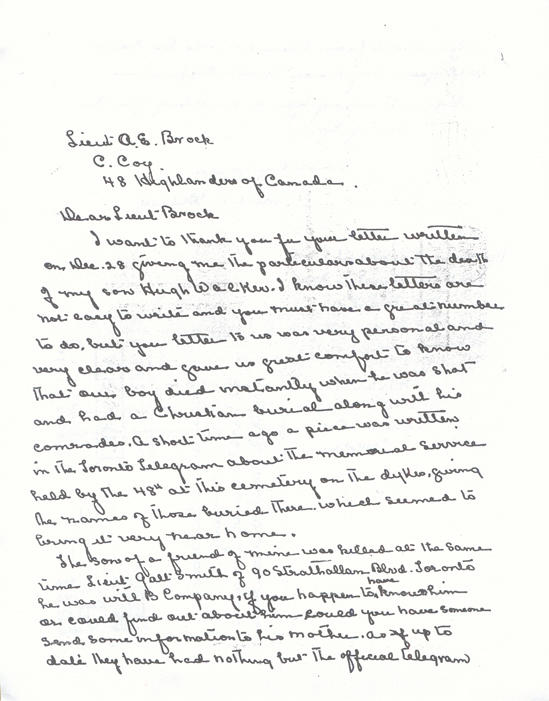 Lieut A.E. Brock
C. Coy.
48 Highlanders of Canada.
Dear Lieut Brock
I want to thank you for your letter written
on Dec. 28 giving me the particulars about the death
of my son Hugh Walker. I know these letters are
not easy to write and you must have a great number
to do, but you letter to us was very personal and
very clear and gave us great comfort to know
that our boy died instantly when he was shot
and had a Christian burial along with his
comrades. A short time ago a piece was written
in the Toronto Telegram about the memorial service
held by the 48th at this cemetery on the dykes, giving
the names of those buried there. which seemed to
bring it very near home.
The son of a friend of mine was killed at the same
time Lieut Galt Smith of 90 Strathallan Blvd. Toronto
he was with B Company, if you happen to have known him
or could find out about him could you have someone
send some information to his mother. as up to
date they have had nothing but the official telegram